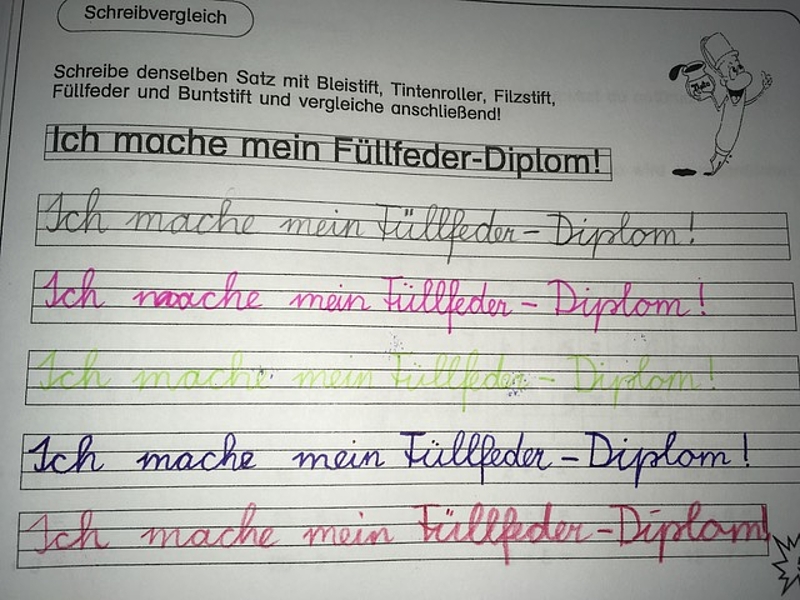 Schreibvergleich
Schreibe denselben Satz mit Bleistift, Tintenroller, Filzstift,
Füllfeder und Buntstift und vergleiche anschließend!
Ich mache mein Füllfeder-Diplom!
Ich mache mein Füllfeder-Diplom!
Ich mache mein Füllfeder-Diplom!
Ich mache mein Füllfeder-Diplom!
Ich mache mein Füllfeder-Diplom!
Ich mache mein Füllfeder-Diplom!